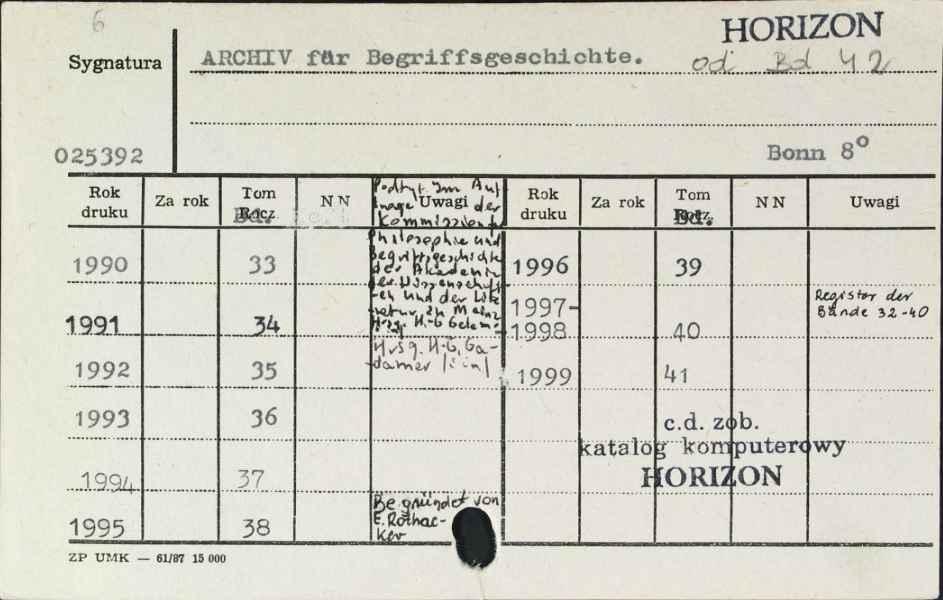 6
HORIZON
Sygnatura
ARCHIV für Begriffsgeschichte.
od Bd 42
025392
Bonn 8°
Rok druku Za rok Tom Bd. NN Uwagi Rok druku Za rok Tom Bd. NN Uwagi
Podtyt. Im Auf
trage der
Kommission f.
Philosophie und
Begriffsgeschichte
der Akademie
der Wissenschaft
-en und der Lite
ratur, zu Mainz
Hrsg. H.-G
Hrsg. H.-G. Ga-
damer
1990 33
1991 34
1992 35
1993 36
1994 37
1995 38
Begründet von
E. Rothac-
ker
1996 39
1997-
-1998 40
Register der
Bände 32-40
1999 41
c.d. zob.
katalog komputerowy
HORIZON
ZP UMK — 61/87 15 000